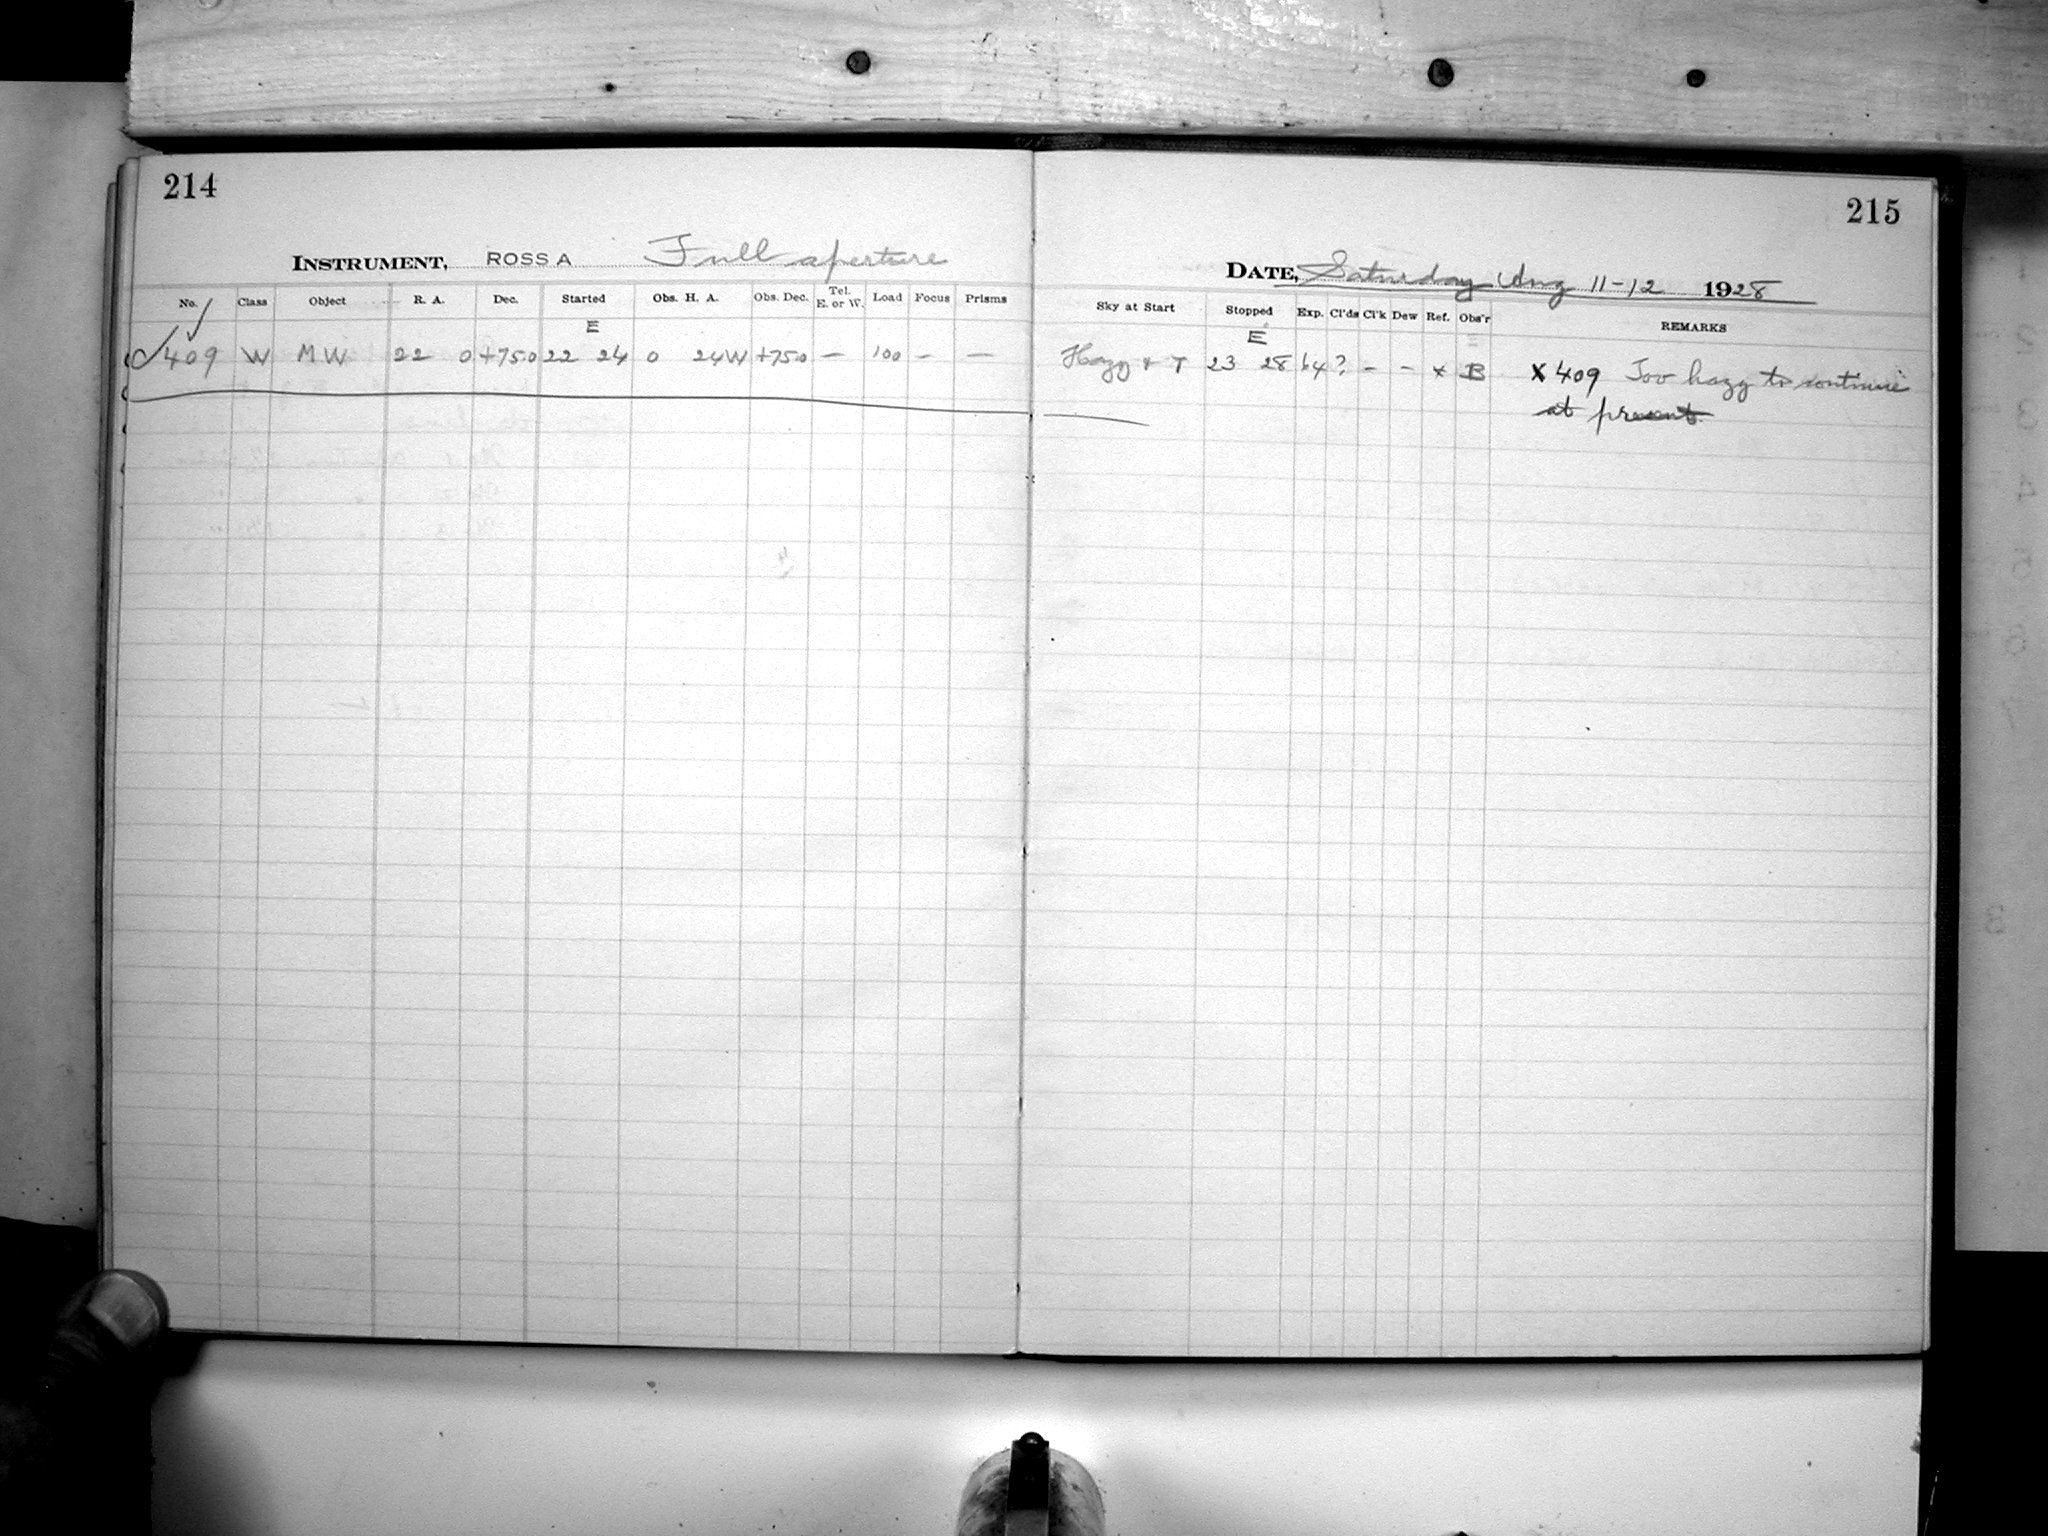 214
INSTRUMENT, ROSS A Full aperture
No. Class Object R. A. Dec. Started Obs. H. A. Obs. Dec. Tel. E. or W. Load Focus Prisms
E
✓409 W MW 22 0 +75.0 22 24 0 24W +75.0 — 100 — —
215
DATE, Saturday Aug 11-12 1928
Sky at Start Stopped Exp. Cl'ds Cl'k Dew Ref. Obs'r REMARKS
E
Hazy + T 23 28 64 ? - - x B X 409 Too hazy to continue
at present